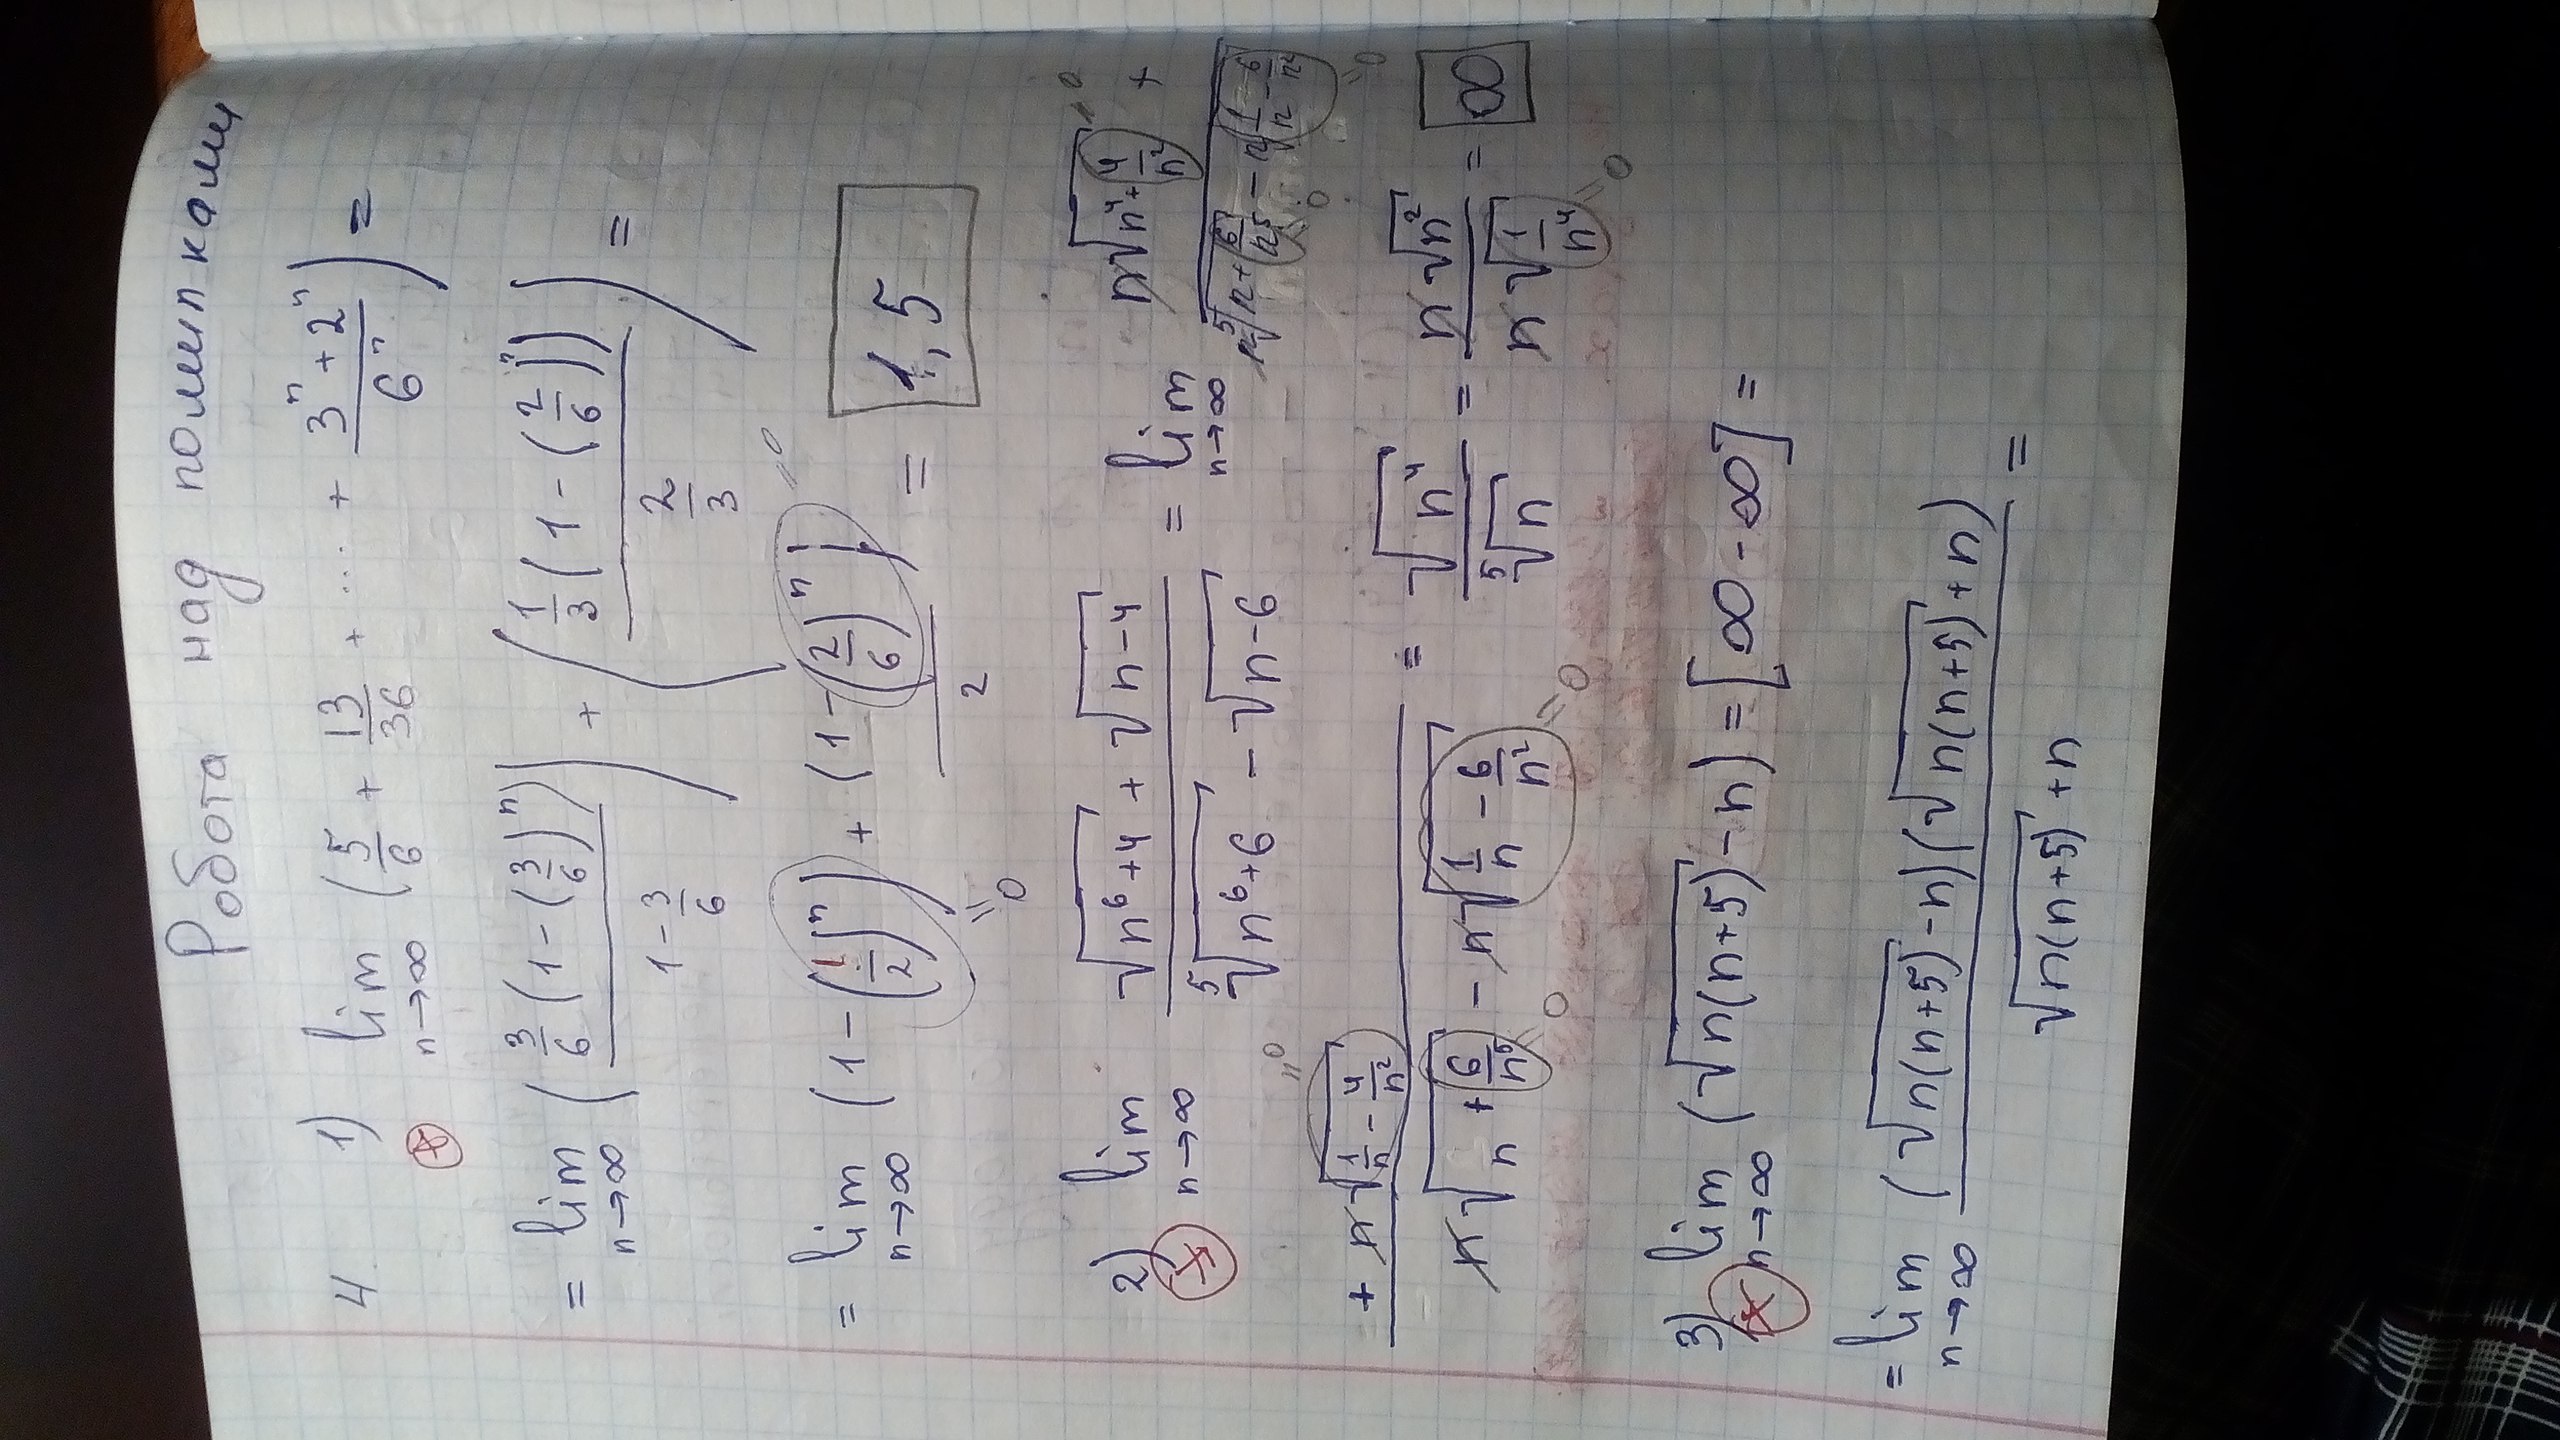 Робота над помилками
4. 1) lim n→∞ (5/6 + 13/36 + ... + (3^n + 2^n)/6^n) =
= lim n→∞ (3/6 (1-(3/6)^n) / (1 - 3/6)) + (1/3 (1-(2/6)^n) / (2/3)) =
= lim n→∞ (1-(1/2)^n) + (1-(2/6)^n)/2 = 1,5
=0 =0
2) lim n→∞ (√(n^6+4) + √(n-4)) / (⁵√(n^6+6) - √(n-6)) = lim n→∞ (n√(n^4+4/n^2) + / (n⁵√(n+6/n^5) - n√(1/n - 6/n^2))
=0 =0 =0
(+ n√(1/n - 4/n^2)) / (n√(n+6/n^5) - n√(1/n - 6/n^2)) = √(n^4) / ⁵√n = n√(n^2) / n√(1/n^4) = ∞
=0 =0 =0 =0
3) lim n→∞ (√(n(n+5)) - n) = [∞ - ∞] =
= lim n→∞ (√(n(n+5)) - n)(√(n(n+5)) + n) / (√(n(n+5)) + n) =